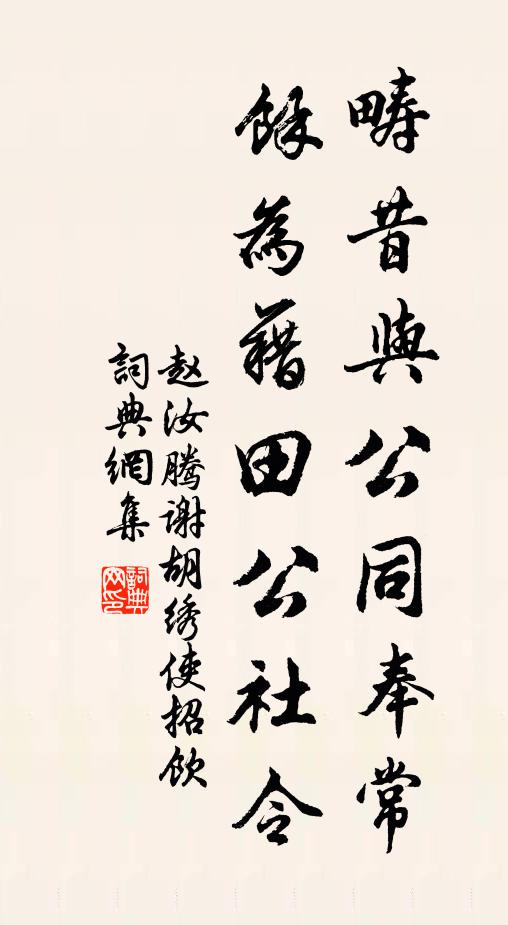 畴昔與公同奉常
餘為藉田公社令
赵汝腾谢胡绣使招饮
詞典網集
詞典網印